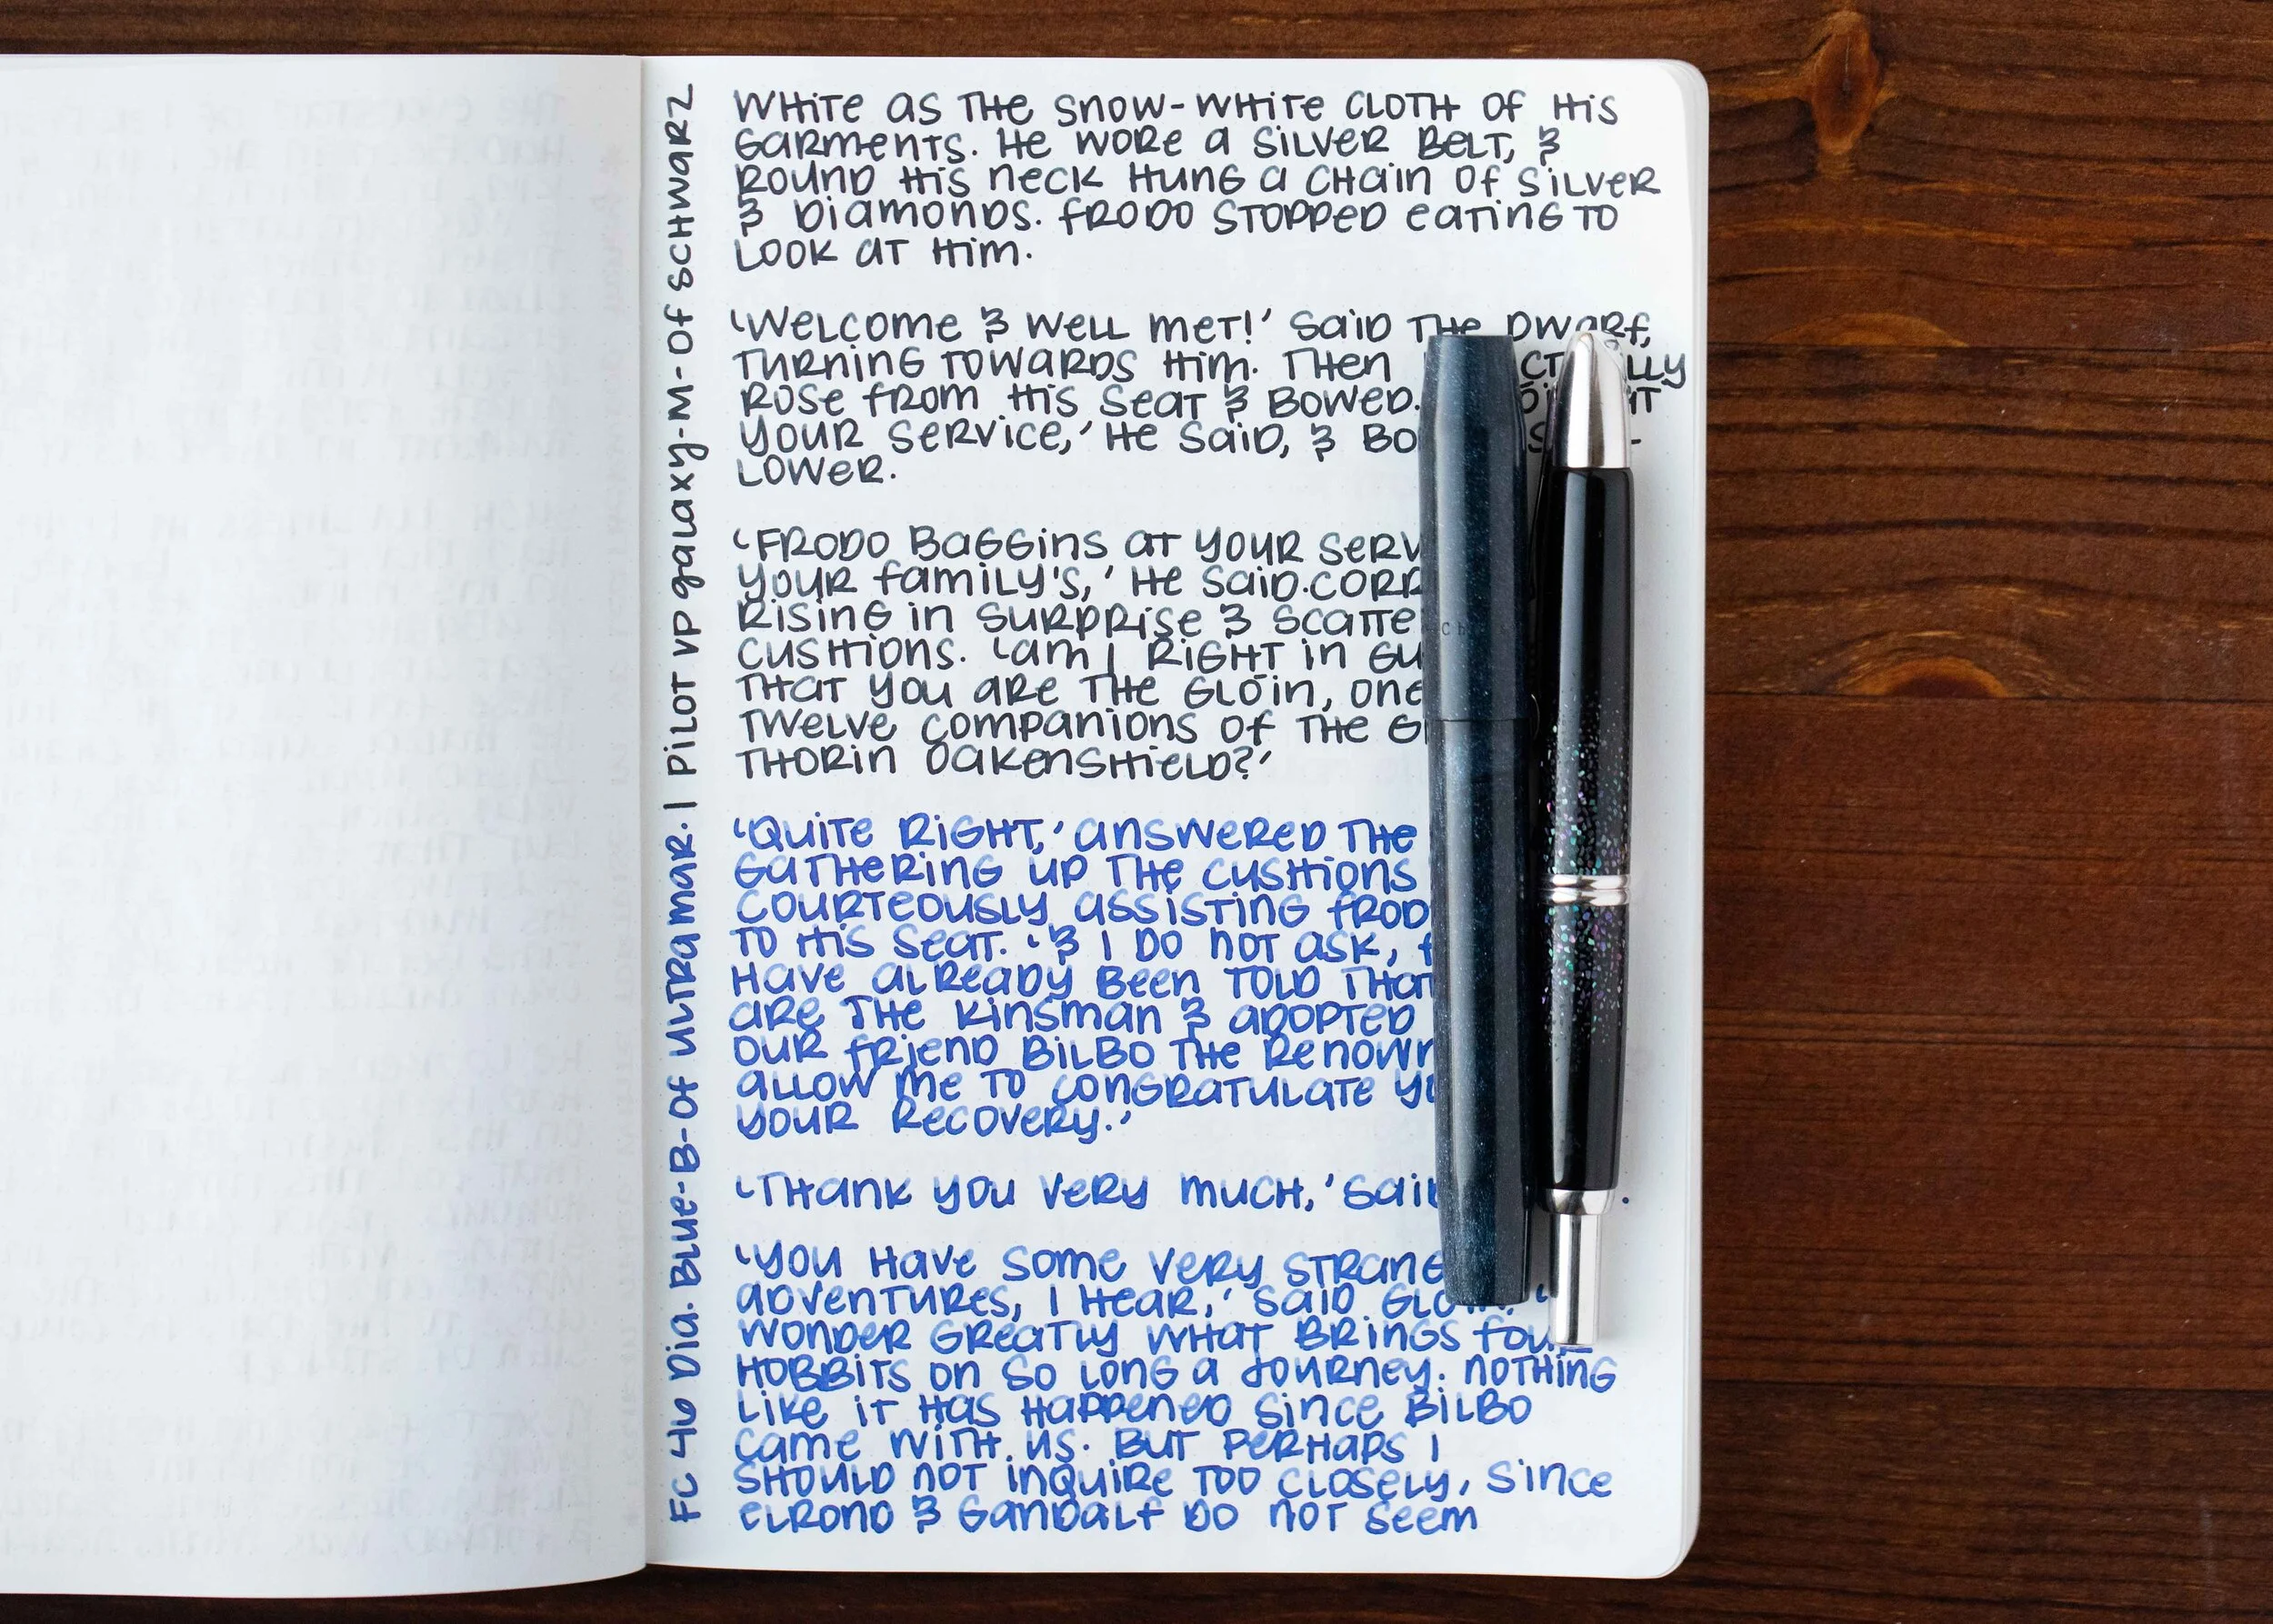 WHITE AS THE SNOW-WHITE CLOTH OF HIS
GARMENTS. HE WORE A SILVER BELT, &
ROUND HIS NECK HUNG A CHAIN OF SILVER
& DIAMONDS. FRODO STOPPED EATING TO
LOOK AT HIM.
'WELCOME & WELL MET!' SAID THE DWARF,
TURNING TOWARDS HIM. THEN
ROSE FROM HIS SEAT & BOWED.
YOUR SERVICE,' HE SAID, & BO
LOWER.
'FRODO BAGGINS AT YOUR SERV
YOUR FAMILY'S,' HE SAID.CORR
RISING IN SURPRISE & SCATTE
CUSHIONS. 'AM I RIGHT IN GU
THAT YOU ARE THE GLÓIN, ONE
TWELVE COMPANIONS OF THE G
THORIN OAKENSHIELD?'
'QUITE RIGHT,' ANSWERED THE
GATHERING UP THE CUSHIONS
COURTEOUSLY ASSISTING FROD
TO HIS SEAT. '& I DO NOT ASK,
HAVE ALREADY BEEN TOLD THAT
ARE THE KINSMAN & ADOPTED
OUR FRIEND BILBO THE RENOWN
ALLOW ME TO CONGRATULATE
YOUR RECOVERY.'
'THANK YOU VERY MUCH,' SAI
'YOU HAVE SOME VERY STRANG
ADVENTURES, I HEAR,' SAID GLÓIN. '
WONDER GREATLY WHAT BRINGS FOUR
HOBBITS ON SO LONG A JOURNEY. NOTHING
LIKE IT HAS HAPPENED SINCE BILBO
CAME WITH US. BUT PERHAPS I
SHOULD NOT INQUIRE TOO CLOSELY, SINCE
ELROND & GANDALF DO NOT SEEM
FC 46 Dia. Blue-B-OF ULTRAMAR. | PILOT VP galaxy-M-OF SCHWARZ